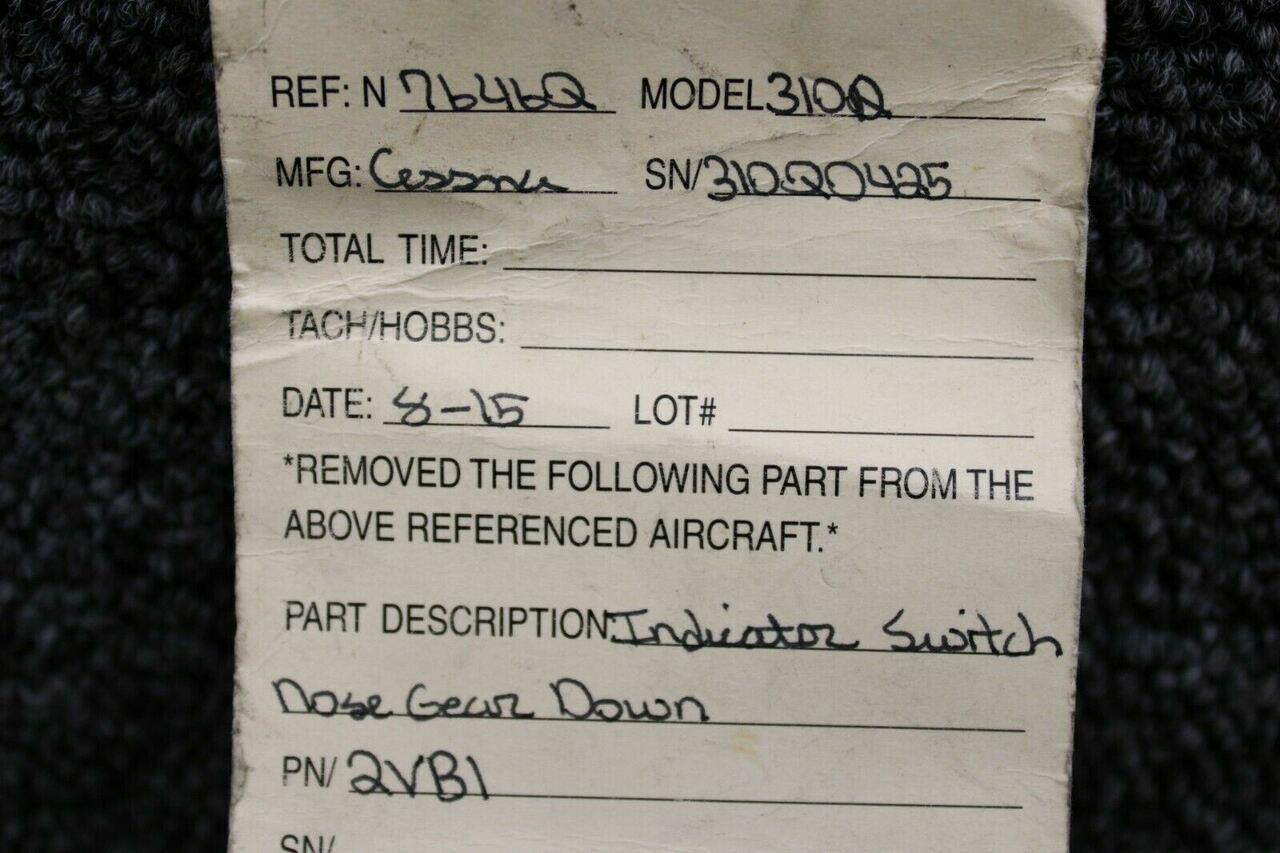 REF: N 7646Q MODEL 310Q
MFG: Cessna SN/ 310Q0425
TOTAL TIME:
TACH/HOBBS:
DATE: 8-15 LOT#
*REMOVED THE FOLLOWING PART FROM THE
ABOVE REFERENCED AIRCRAFT.*
PART DESCRIPTION: Indicator Switch
Nose Gear Down
PN/ 2VB1
SN/